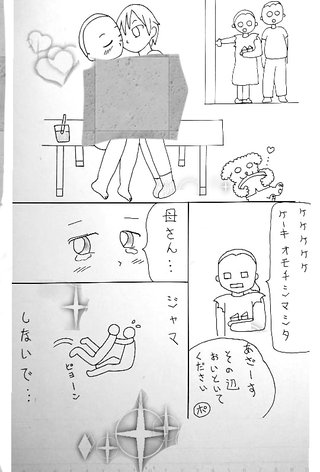 ケケケケケ
ケーキ オモチシマシタ
あざーす
その辺
おいといて
ください
ポ
母さん…
ジャマ
ピョーン
しないで…